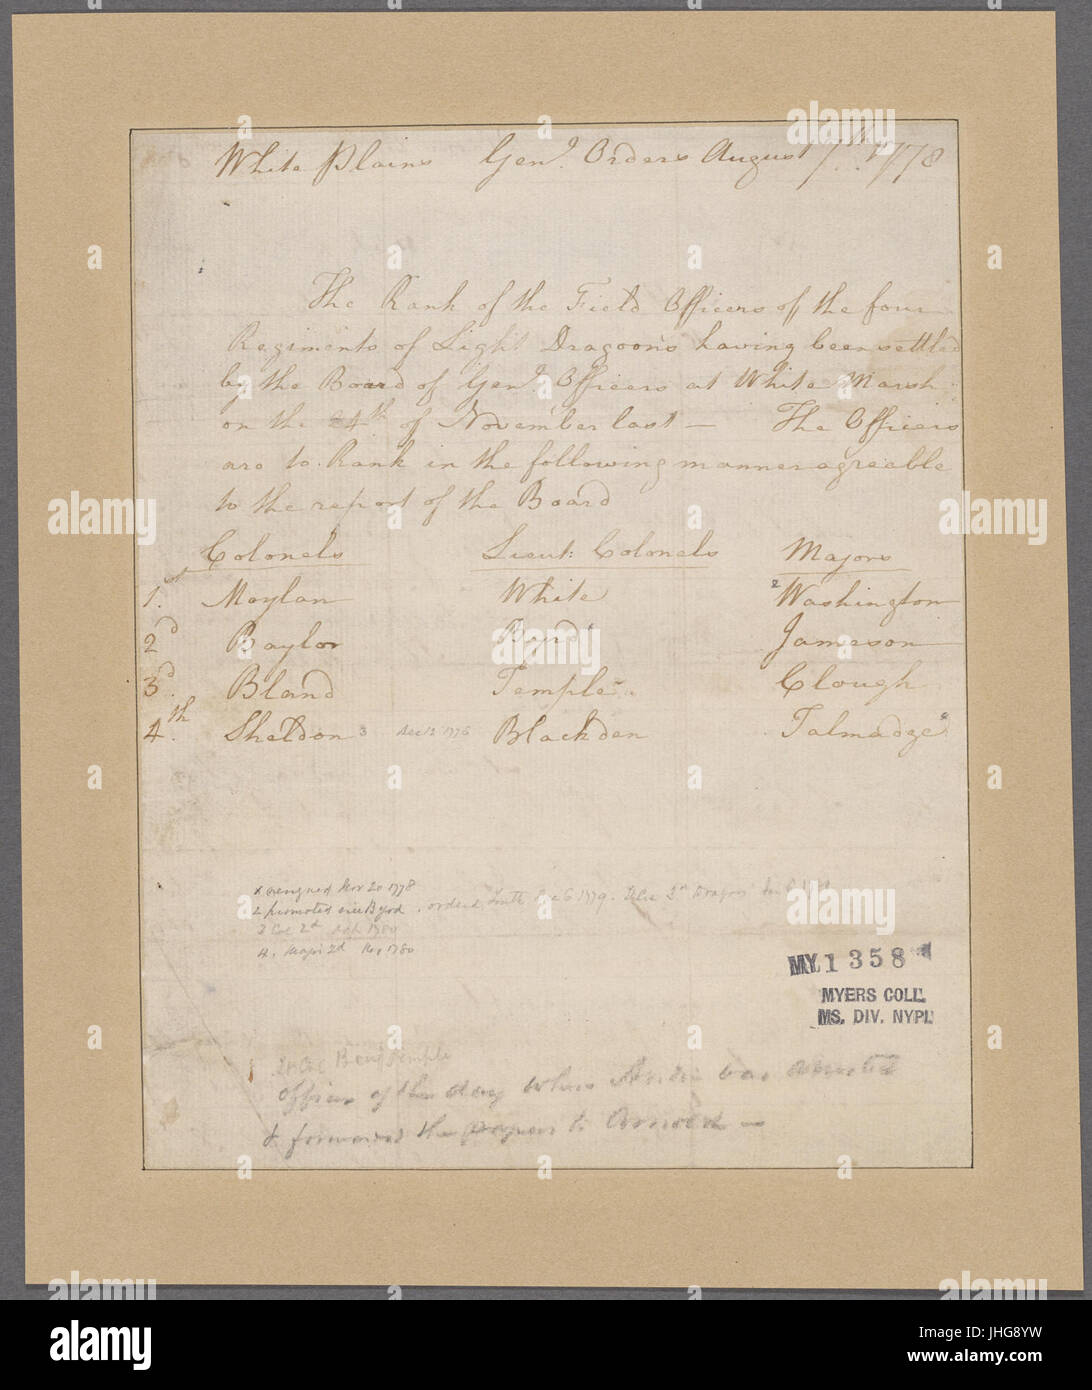 White Plains Gen.l Orders August 7th 1778
The Rank of the Field Officers of the four
Regiments of Light Dragoons having been settled
by the Board of Gen.l Officers at White Marsh
on the 24th of November last — The Officers
are to Rank in the following manner agreeable
to the report of the Board
Colonels Lieut: Colonels Majors
1.st Moylan White 2 Washington
2d Baylor Byrd Jameson
3d. Bland Temple Clough
4.th Sheldon 3 Dec 12 1776 Blackden Talmadge
x resigned Nov 20 1778
2 promoted vice Byrd. ordered South Dec 6 1779. 2d Dragoons
3 Col 2d 1780
4. Major 2d 1780
MY. 1358
MYERS COLL.
MS. DIV. NYPL
Temple
officer of the day when was arrested
& forwarded the papers to Arnold —
alamy
Image ID: JHG8YW
www.alamy.com